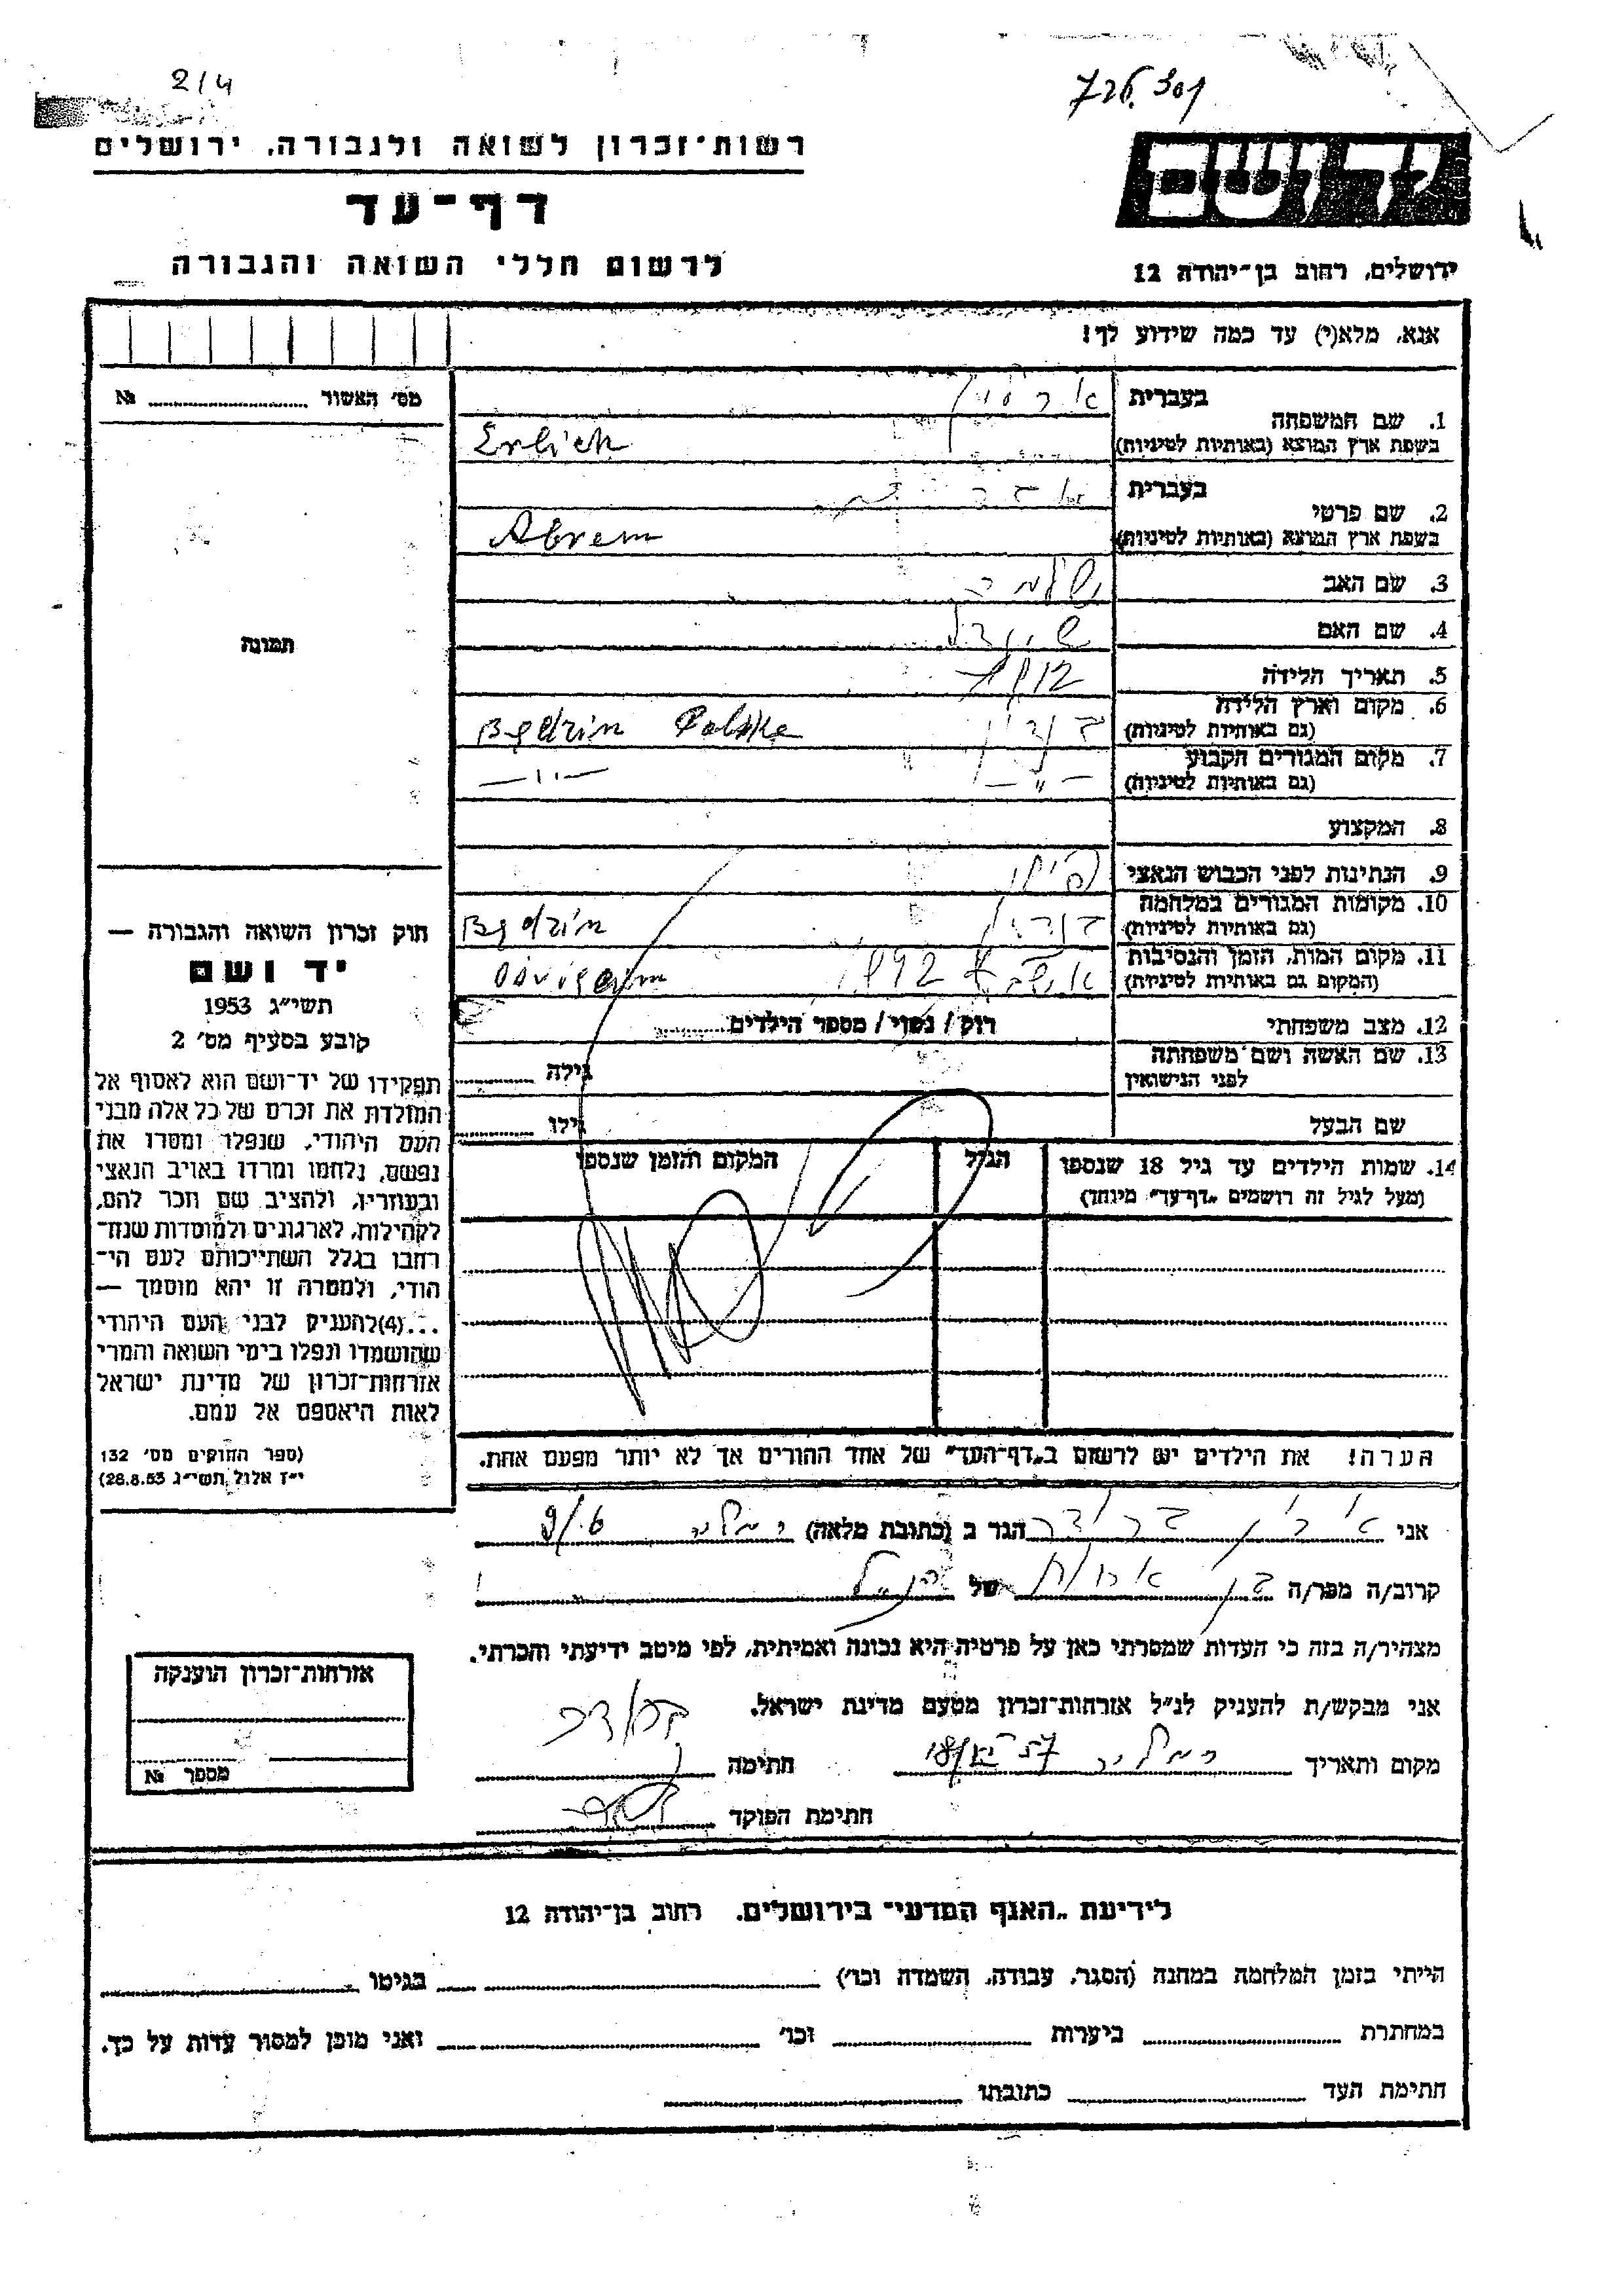 2/4
רשות־זכרון לשואה ולגבורה, ירושלים
דף־עד
לרשום חללי השואה והגבורה
יד ושם
ירושלים, רחוב בן־יהודה 12
אנא, מלא(י) עד כמה שידוע לך!
מס׳ האשור № 
תמונה
1. שם המשפחה בעברית ארליך
בשפת ארץ המוצא (באותיות לטיניות) Erlich
2. שם פרטי בעברית
בשפת ארץ המוצא (באותיות לטיניות) Abrem
3. שם האב שלמה
4. שם האם
5. תאריך הלידה
6. מקום וארץ הלידה
(גם באותיות לטיניות) בנדין Będzin Polska
7. מקום המגורים הקבוע
(גם באותיות לטיניות) — " — — " —
8. המקצוע
9. הנתינות לפני הכבוש הנאצי
10. מקומות המגורים במלחמה
(גם באותיות לטיניות) בנדין Będzin
11. מקום המות, הזמן והנסיבות
(המקום גם באותיות לטיניות) 1942
12. מצב משפחתי רוק / נשוי / מספר הילדים
13. שם האשה ושם משפחתה
לפני הנישואין גילה
שם הבעל גילו
14. שמות הילדים עד גיל 18 שנספו
(מעל לגיל זה רושמים „דף־עד" מיוחד)
הגיל
המקום והזמן שנספו
הערה! את הילדים יש לרשום ב„דף־העד" של אחד ההורים אך לא יותר מפעם אחת.
חוק זכרון השואה והגבורה —
יד ושם
תשי״ג 1953
קובע בסעיף מס׳ 2
תפקידו של יד־ושם הוא לאסוף אל
המולדת את זכרם של כל אלה מבני
העם היהודי, שנפלו ומסרו את
נפשם, נלחמו ומרדו באויב הנאצי
ובעוזריו, ולהציב שם וזכר להם,
לקהילות, לארגונים ולמוסדות שנח־
רבו בגלל השתייכותם לעם הי־
הודי, ולמטרה זו יהא מוסמך —
...(4) להעניק לבני העם היהודי
שהושמדו ונפלו בימי השואה והמרי
אזרחות־זכרון של מדינת ישראל
לאות היאספם אל עמם.
(ספר החוקים מס׳ 132
י״ז אלול תשי״ג 28.8.53)
אני הגר ב (כתובת מלאה)
קרוב/ה מפר/ה בן אחות של הנ״ל
מצהיר/ה בזה כי העדות שמסרתי כאן על פרטיה היא נכונה ואמיתית, לפי מיטב ידיעתי והכרתי.
אני מבקש/ת להעניק לנ״ל אזרחות־זכרון מטעם מדינת ישראל.
מקום ותאריך חתימה
חתימת הפוקד
אזרחות־זכרון הוענקה
מספר №
לידיעת „האגף המדעי" בירושלים. רחוב בן־יהודה 12
הייתי בזמן המלחמה במחנה (הסגר, עבודה, השמדה וכו׳) בגיטו
במחתרת ביערות וכו׳ ואני מוכן למסור עדות על כך.
חתימת העד כתובתו